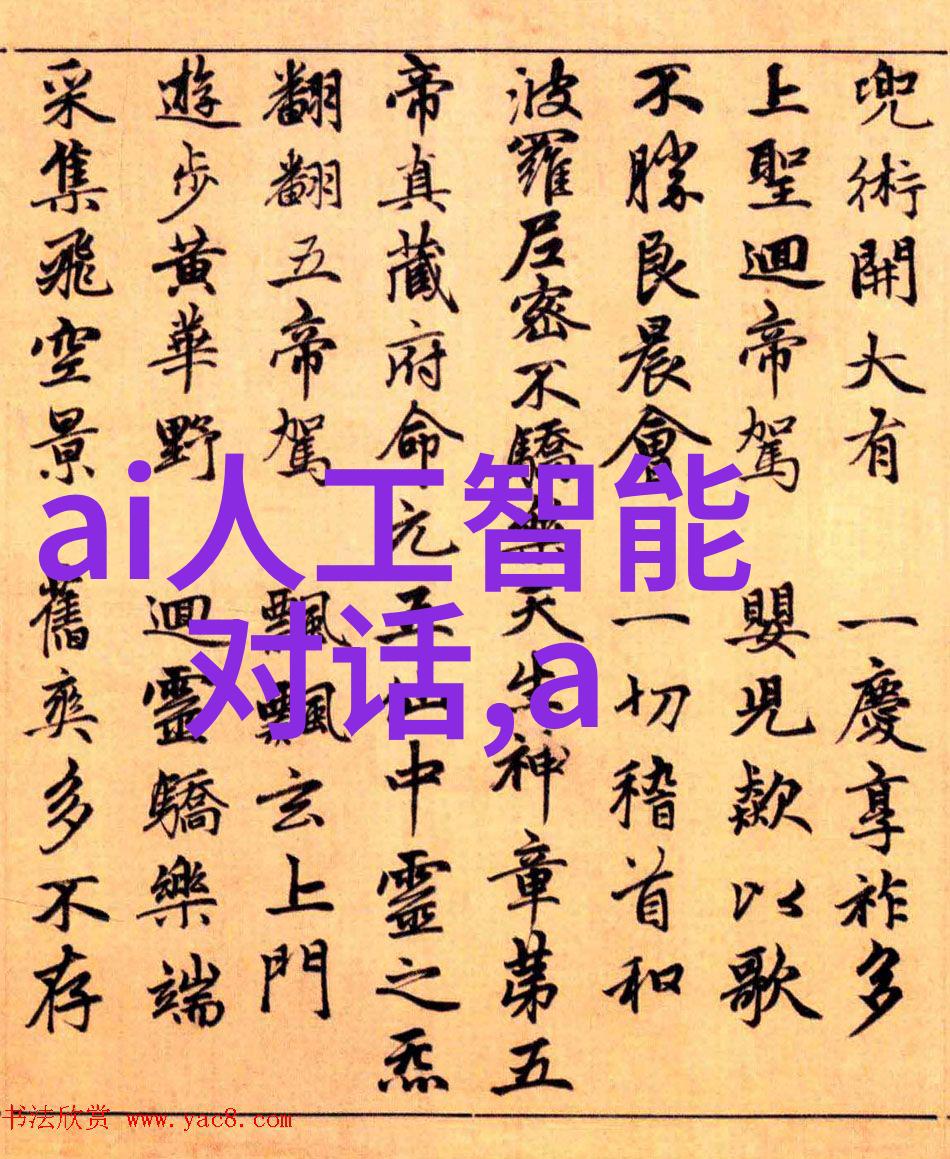 兜術開大有 一慶享祚多
上聖迴帝駕 嬰児歎以歌
不勝良晨會 一切稽首和
波羅尼密不驕樂天生神章第五
帝真藏府命元王仙中靈之炁
翩翩五帝駕 飄飄玄上門
遊步黃華野 迴靈驕樂端
采集飛空景 舊爽多不存
ai人工智能
对话,a
书法欣赏 www.yac8.com